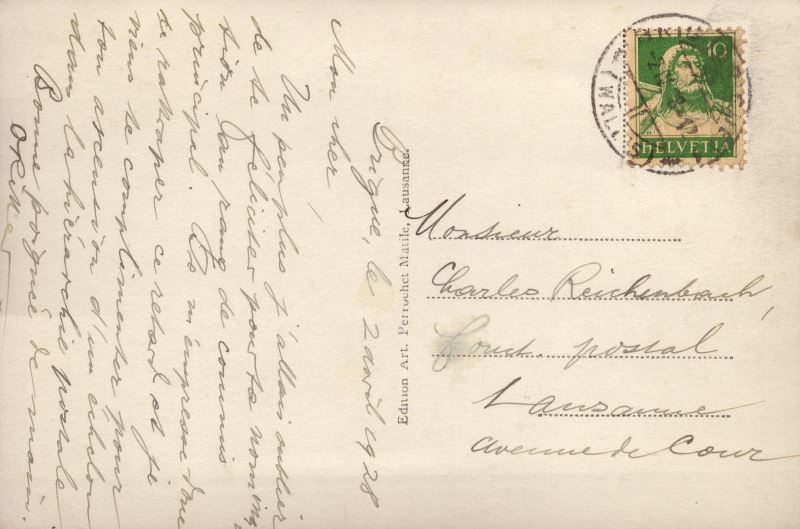 Brigue, le 2 avril 1928
Mon cher
Un peu plus j'allais oublier
de te féliciter pour ta nomina
tion au rang de commis
principal. Je m'empresse donc
de rattraper ce retard et je
viens te complimenter pour
ton ascension d'un échelon
dans la hiérarchie postale
Bonne poignée de main.
Edition Art. Perrochet Matile, Lausanne.
10
HELVETIA
(WALLIS)
Monsieur
Charles Reichenbach,
fonct. postal
Lausanne
Avenue de Cour